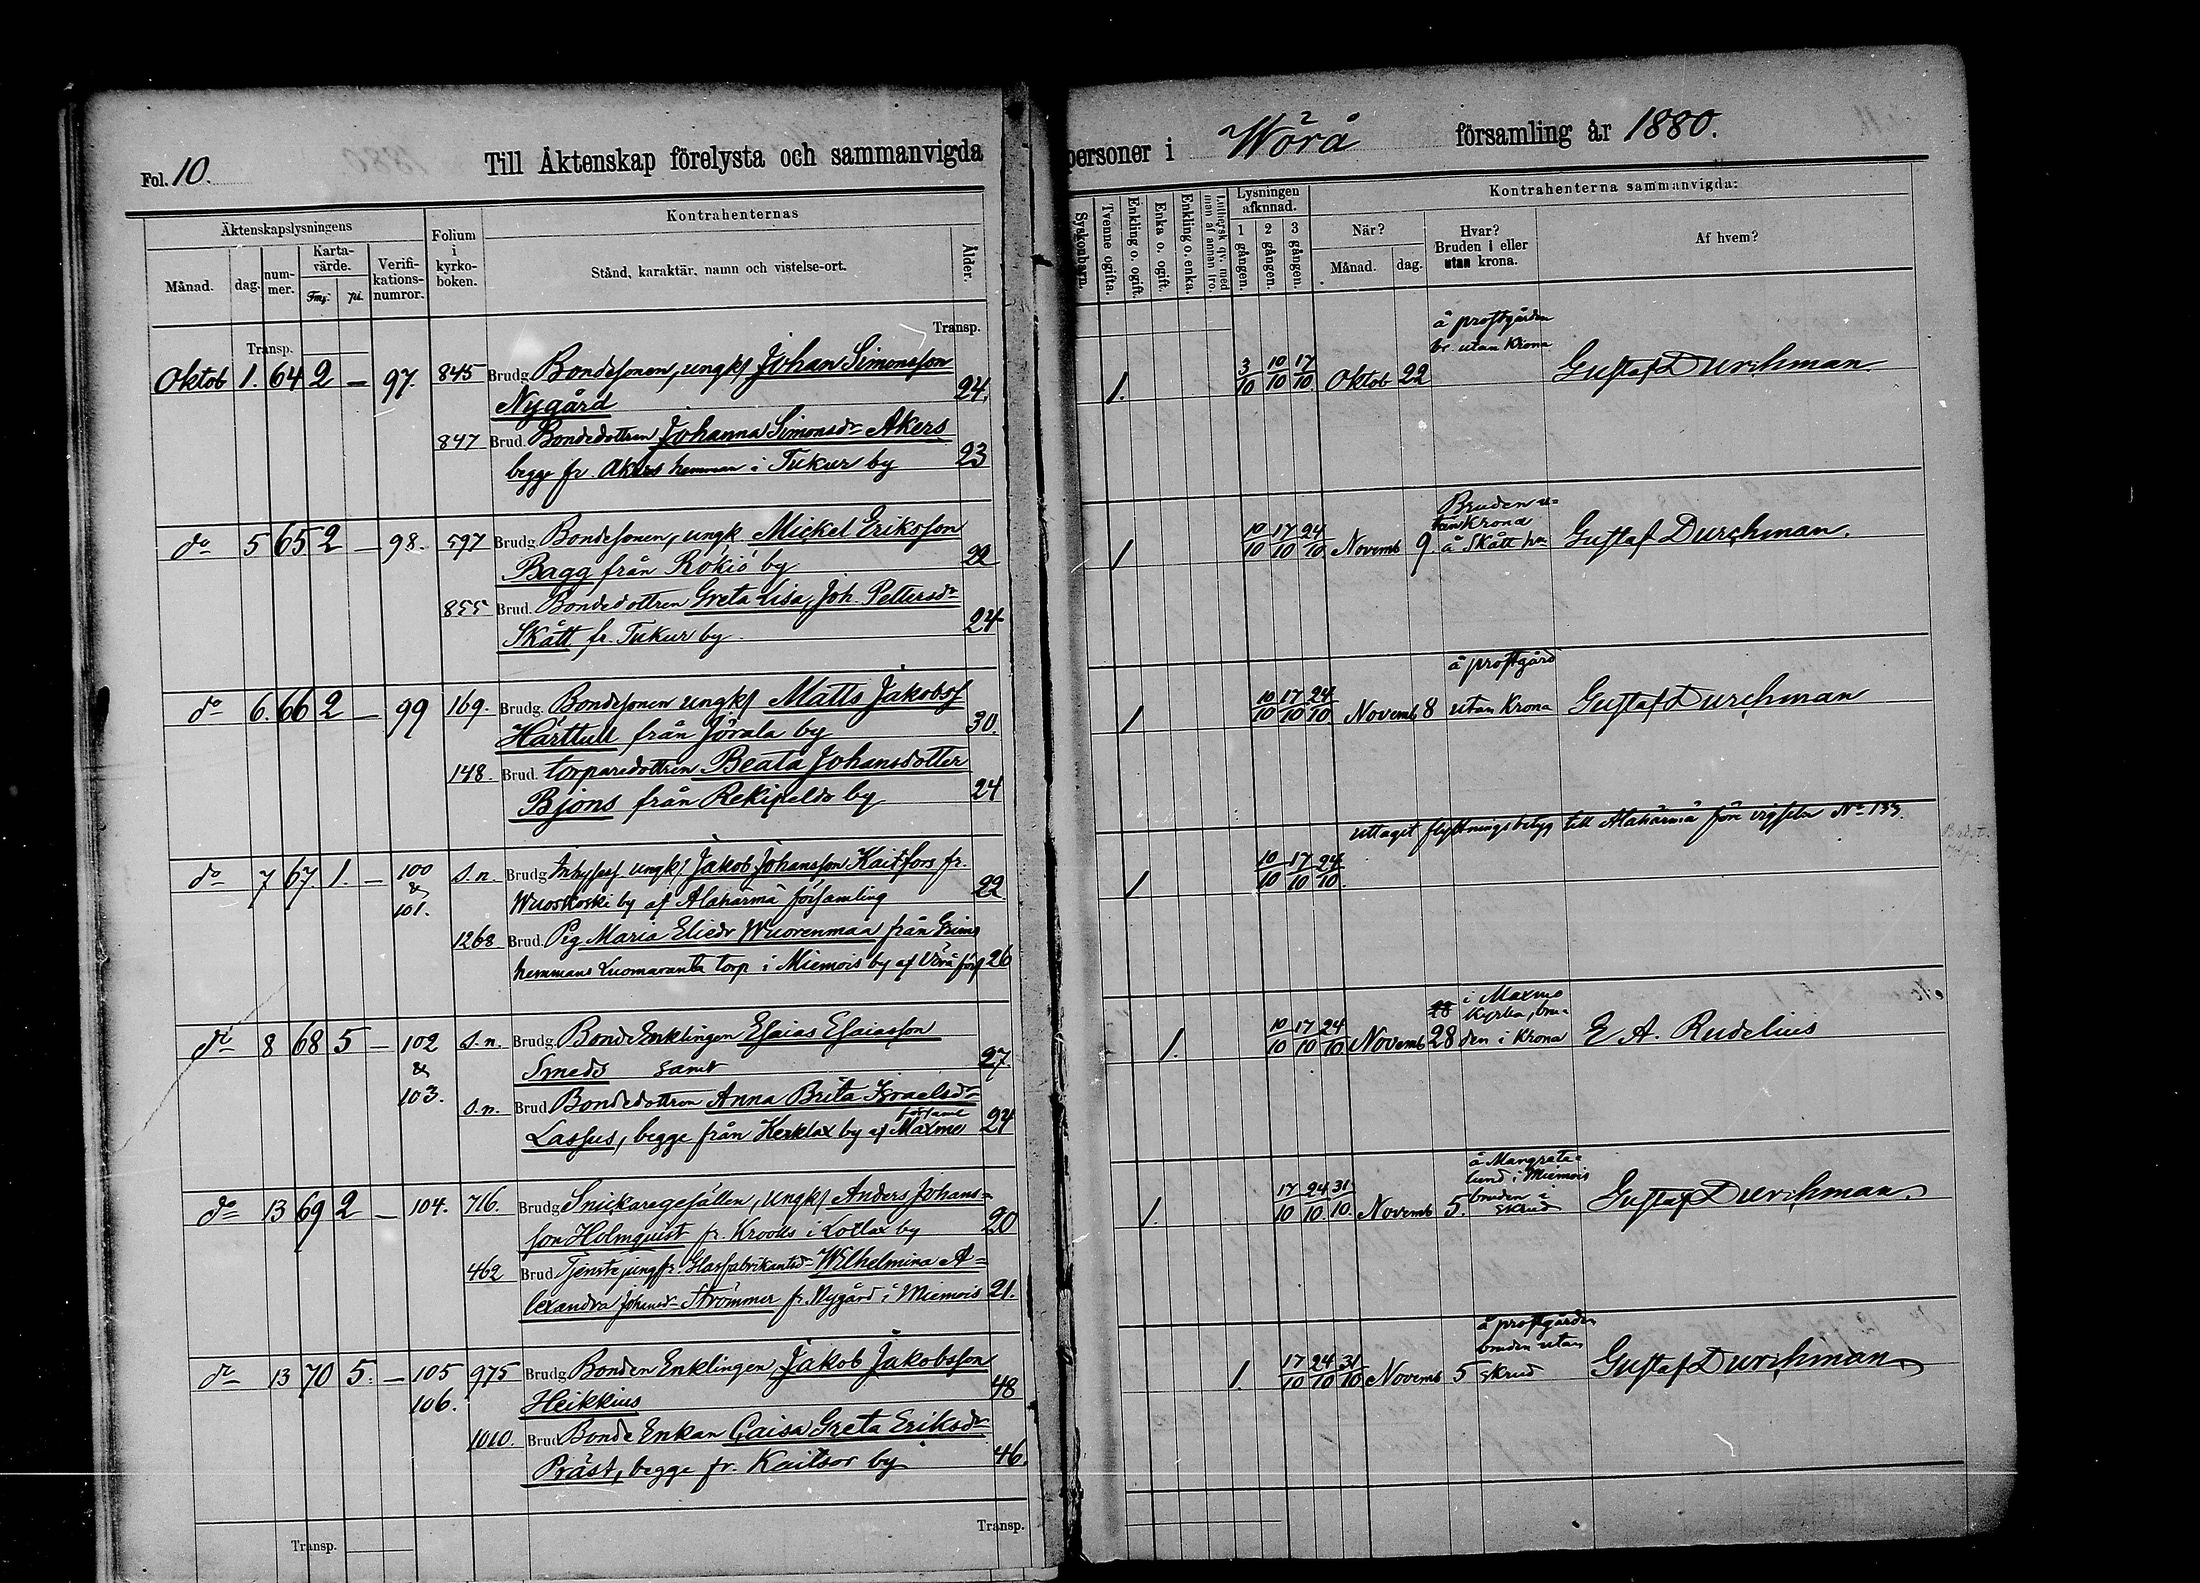 Fol. 10.
Till Äktenskap förelysta och sammanvigda personer i Wörå församling år 1880.
Äktenskapslysningens
Folium i kyrkoboken.
Kontrahenternas
Lysningen afkunnad.
Kontrahenterna sammanvigda:
Månad.
dag.
nummer.
Kartavärde.
Fmg. pi.
Verifikationsnumror.
Stånd, karaktär, namn och vistelse-ort.
Ålder.
Syskonbarn.
Tvenne ogifta.
Enkling o. ogift.
Enka o. ogift.
Enkling o. enka.
Luthersk qv. med man af annan tro.
1 gången.
2 gången.
3 gången.
När?
Månad.
dag.
Hvar? Bruden i eller utan krona.
Af hvem?
Transp.
Transp.
Oktob 1. 64 2 — 97. 845 Brudg. Bondesonen, ungkf Johan Simonsson
Nygård 24.
847 Brud. Bondedottren Johanna Simonsdr Akers
begge fr. Akers hemman i Tukur by 23
1. 3/10 10/10 17/10 Oktob 22
å prostgården
br. utan Krona
Gustaf Durchman
do 5 65 2 — 98. 597 Brudg. Bondesonen, ungk Mickel Eriksson
Bagg från Rökiö by 22
855 Brud. Bondedottren Greta Lisa, Joh. Pettersdr
Skått fr. Tukur by 24
1 10/10 17/10 24/10 Novemb 9.
Bruden u=
tan Krona
å Skått hm
Gustaf Durchman.
do 6. 66 2 — 99 169. Brudg. Bondesonen ungkf Matts Jakobsf
Härttull från Jörala by 30.
148. Brud. torparedottren Beata Johansdotter
Bjons från Rekipeldo by 24
1 10/10 17/10 24/10 Novemb 8
å prostgård
utan Krona
Gustaf Durchman
do 7 67 1. — 100 & 101. s.n. Brudg. Inhysesf ungkf Jakob Johansson Kaitfors fr.
Wuoskoski by af Alahärmä församling 22
1268 Brud. Pig Maria Eliedr Wuorenmaa från Grims
hemmans Luomaranta torp i Miemois by af Vörå förs 26
uttaget flyttningsbetyg till Alahärmä före vigseln No 133.
1. 10/10 17/10 24/10.
do 8 68 5 — 102 & 103. s.n. Brudg. Bonde Enklingen Esaias Esaiasson
Smeds samt 27.
s.n. Brud. Bondedottren Anna Brita Israelsdr
Lassus, begge från Kerklax by af Maxmo 24
1. 10/10 17/10 24/10 Novemb 28
i Maxmo
Kyrka, bru=
den i Krona
E. A. Rudelius
do 13 69 2 — 104. 716. Brudg. Snickaregesällen, ungkf Anders Johans=
son Holmquist fr. Krooks i Lotlax by 20
462 Brud. Tjenstejungfr. Wilhelmina A=
lexandra Strömmer fr. Nygård i Miemois 21.
1. 17/10 24/10. 31/10. Novemb 5.
bruden i
skrud
Gustaf Durchman.
do 13 70 5. — 105 106. 975 Brudg. Bonden Enklingen, Jakob Jakobsson
Heikkius 48
1010. Brud. Bonde Enkan Caisa Greta Eriksdr
Präst, begge fr. Kaitsor by 46.
1. 17/10 24/10 31/10 Novemb 5
å prostgården
bruden utan
skrud
Gustaf Durchman.
Transp.
Transp.